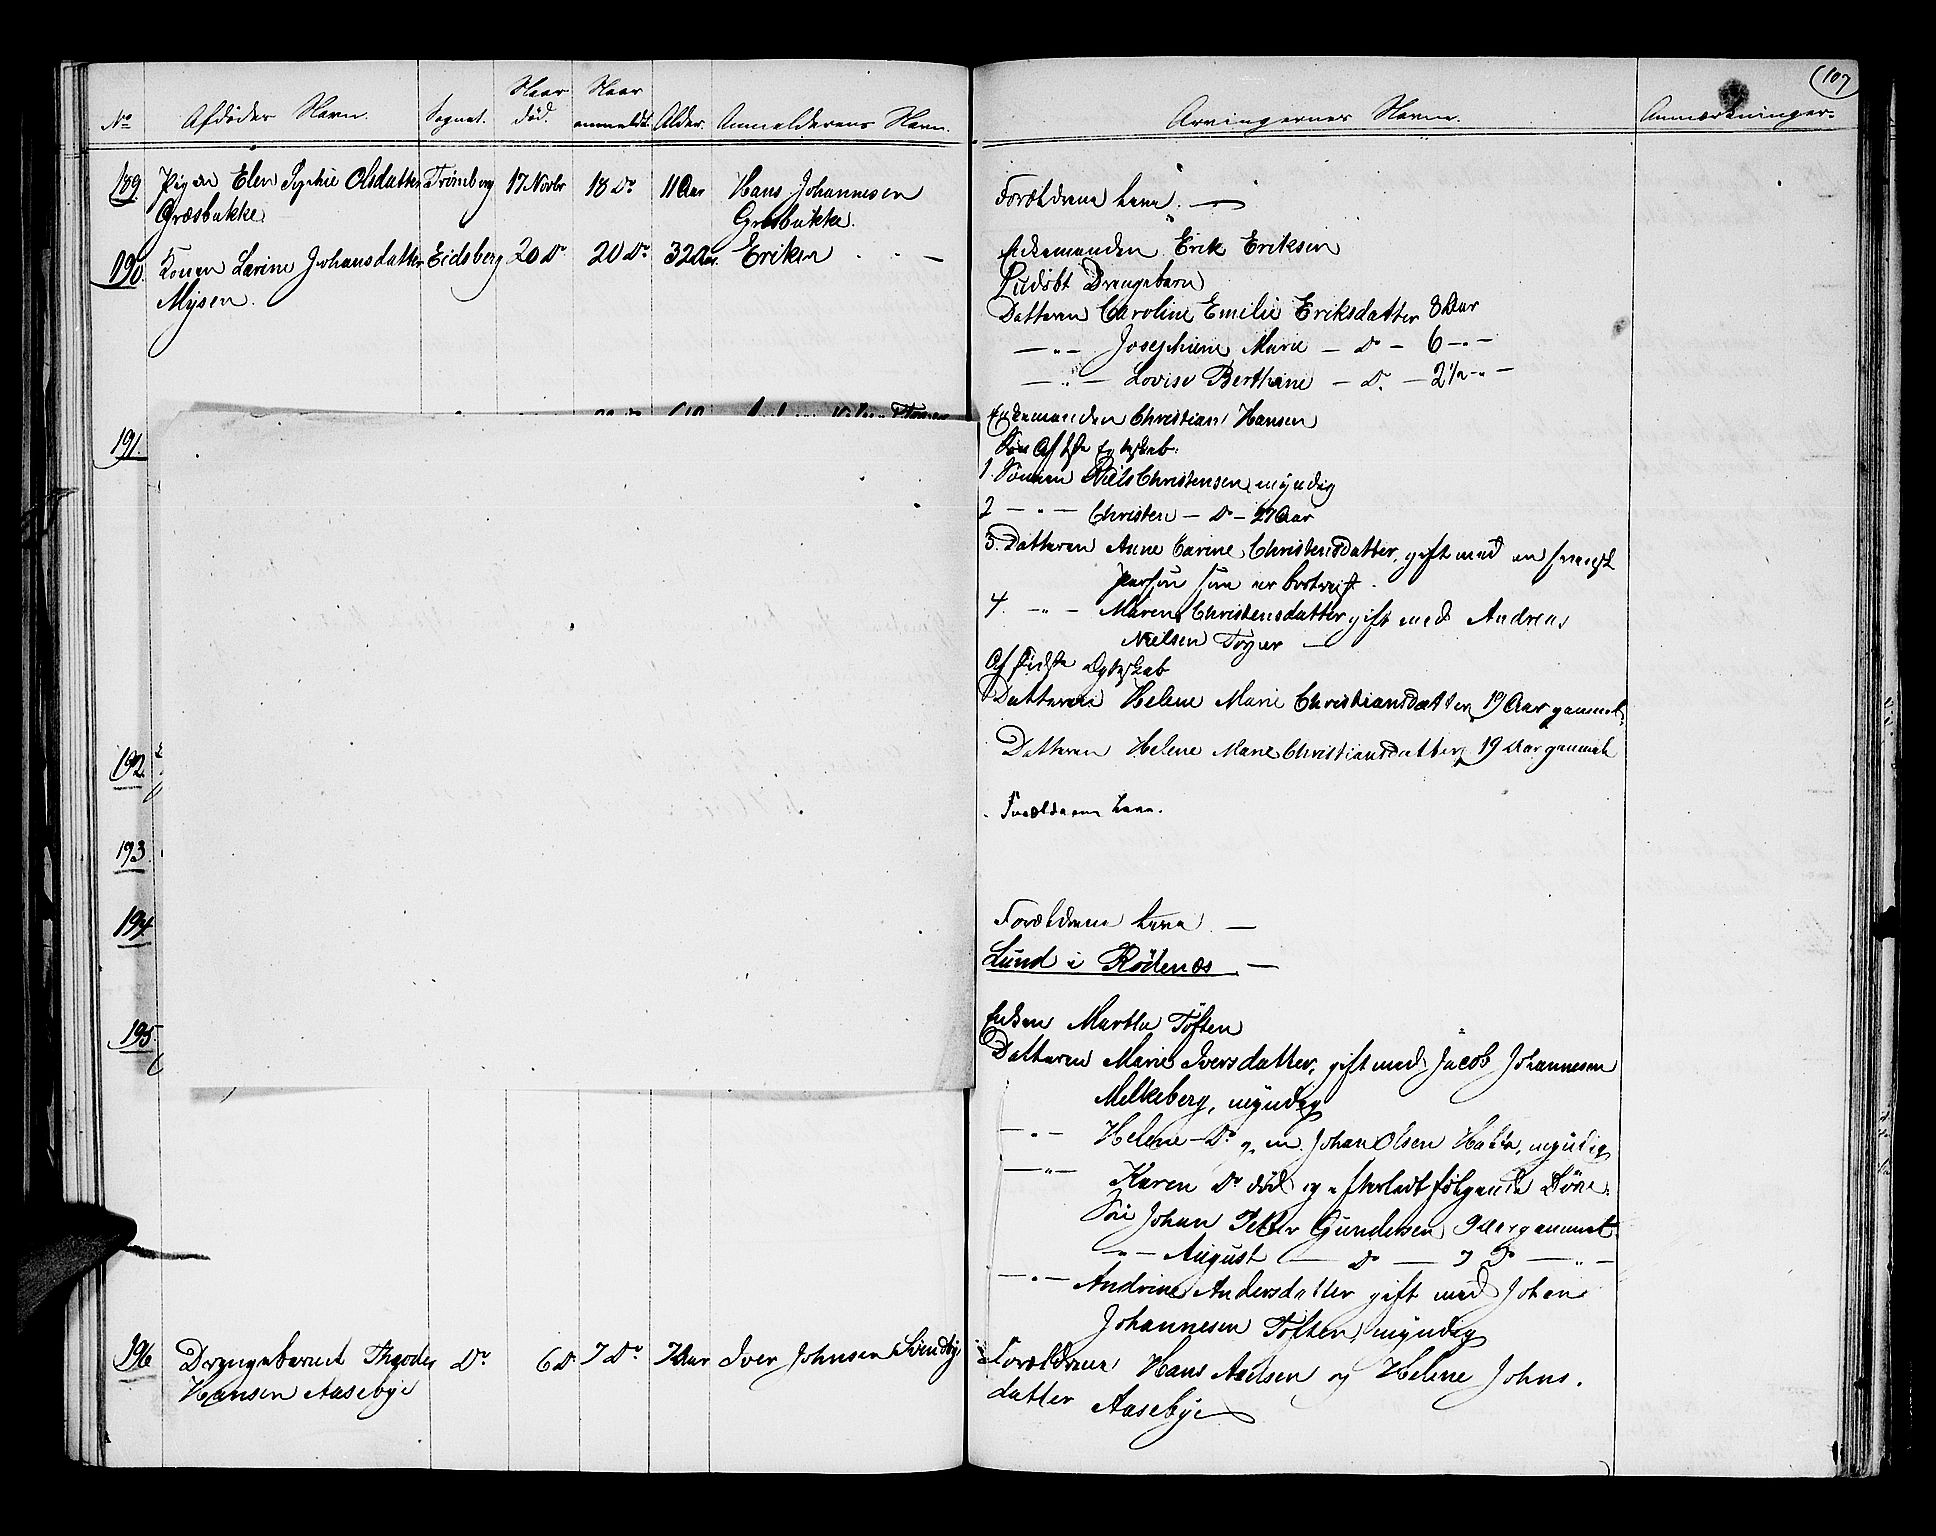 107
No Afdødes Navn. Sognet. Naar død. Naar anmeldt. Alder. Anmelderens Navn. Arvingernes Navne. Anmærkninger
189. Pigen Elen Sophie Olsdatter Trømborg 17 Novbr 18 Do 11 Aar Hans Johannesen
Græsbakke Græsbakke.
Forældrene leve. —
190. Konen Larine Johansdatter Eidsberg 20 Do 20 Do 32 Aar Eriksen —
Mysen.
Enkemanden Erik Eriksen
Udøbt Drengebarn
Datteren Caroline Emilie Eriksdatter 8 Aar
— " — Josephine Marie — Do — 6 — " —
— " — Lovise Berthine — Do — 2½ — " —
191.
Enkemanden Christian Hansen
Af 1ste Egteskab:
1. Sønnen Niels Christensen, myndig
2 — " — Christen — Do — 27 Aar
3. Datteren Anne Carine Christensdatter, gift med en svensk
person som er bortreist.
4. — " — Maren Christensdatter gift med Andreas
Nielsen —
Af sidste Egteskab
Datteren Helene Marie Christiansdatter, 19 Aar gammel.
192.
Datteren Helene Marie Christiansdatter, 19 Aar gammel
193.
Forældrene leve.
194.
Forældrene leve. —
Lund i Rødenæs. —
195.
Enken Marthe Toften
Datteren Marie Iversdatter, gift med Jacob Johannesen
Melkeberg, myndig
— " — Helene — Do g. m. Johan Olsen myndig
— " — Karen Do død og efterladt følgende Børn:
Søn Johan Petter Gundersen 9 Aar gammel
" — August — Do — 7 Do — " —
— " — Andrine Andersdatter gift med Johan
Johannesen Toften, myndig
196. Drengebarnet Theodor Do 6 Do 7 Do Aar Iver Johnsen
Hansen Aasebye
Forældrene Hans Nielsen og Helene Johns.
datter Aasebye